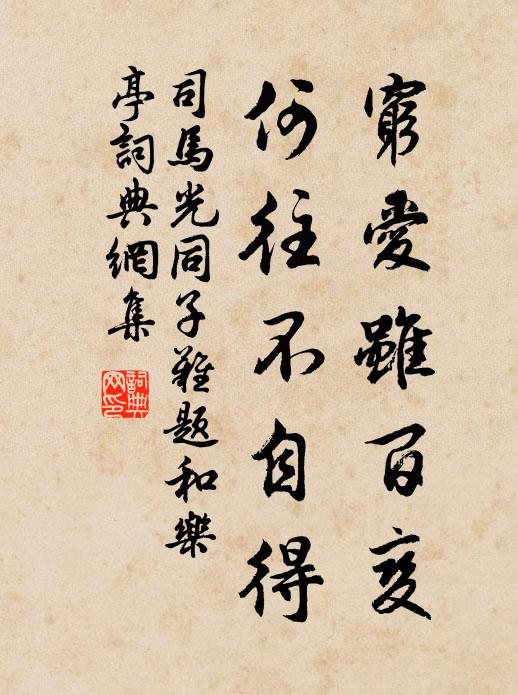 窮愛雖百变
何往不自得
司馬光同子難题和樂
亭詞典網集
詞典网印